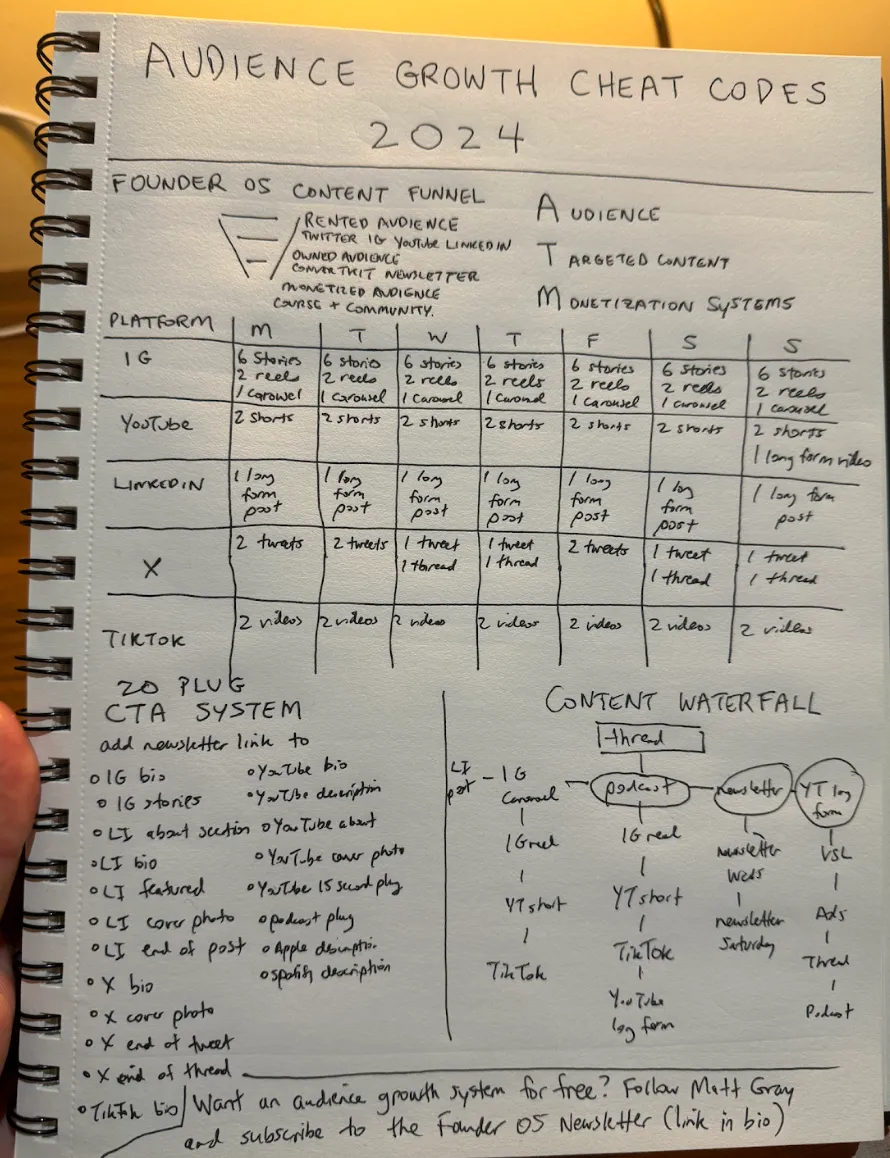 AUDIENCE GROWTH CHEAT CODES
2024
FOUNDER OS CONTENT FUNNEL
RENTED AUDIENCE
TWITTER IG YOUTUBE LINKEDIN
OWNED AUDIENCE
CONVERTKIT NEWSLETTER
MONETIZED AUDIENCE
COURSE + COMMUNITY.
AUDIENCE
TARGETED CONTENT
MONETIZATION SYSTEMS
PLATFORM M T W T F S S
IG
6 Stories 6 stories 6 stories 6 stories 6 stories 6 stories 6 stories
2 reels 2 reels 2 reels 2 reels 2 reels 2 reels 2 reels
1 carousel 1 carousel 1 carousel 1 carousel 1 carousel 1 carousel 1 carousel
YOUTUBE 2 shorts 2 shorts 2 shorts 2 shorts 2 shorts 2 shorts 2 shorts
1 long form video
LINKEDIN
1 long 1 long 1 long 1 long 1 long 1 long 1 long form
form form form form form form post
post post post post post post
X 2 tweets 2 tweets 1 tweet 1 tweet 2 tweets 1 tweet 1 tweet
1 thread 1 thread 1 thread 1 thread
TIKTOK 2 videos 2 videos 2 videos 2 videos 2 videos 2 videos 2 videos
20 PLUG
CTA SYSTEM
add newsletter link to
o IG bio
o IG stories
o LI about section
o LI bio
o LI featured
o LI cover photo
o LI end of post
o X bio
o X cover photo
o X end of tweet
o X end of thread
o TikTok bio
o YouTube bio
o YouTube description
o YouTube about
o YouTube cover photo
o YouTube 15 second plug
o podcast plug
o Apple description
o spotify description
CONTENT WATERFALL
thread
LI post - IG Carousel
IG reel
YT short
TikTok
podcast
IG reel
YT short
TikTok
YouTube
long form
newsletter
newsletter
Weds
newsletter
Saturday
YT long
form
VSL
Ads
Thread
Podcast
Want an audience growth system for free? Follow Matt Gray
and subscribe to the Founder OS Newsletter (link in bio)